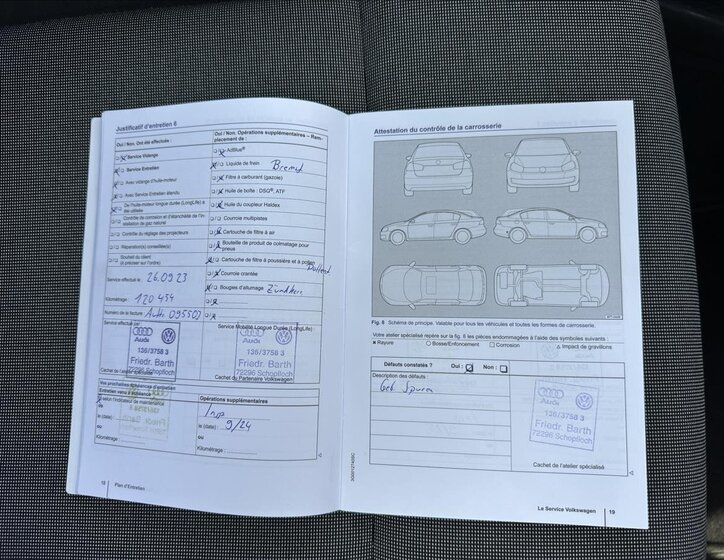 Justificatif d'entretien 6
Oui / Non. Ont été effectués :
Service Vidange
Service Entretien
Avec vidange d'huile-moteur
Avec Service Entretien étendu
De l'huile-moteur longue durée (LongLife) a été utilisée
Contrôle de corrosion et d'étanchéité de l'installation de gaz naturel
Contrôle du réglage des projecteurs
Réparation(s) conseillée(s)
Souhait du client
(à préciser sur l'ordre)
Service effectué le : 26.09.23
Kilométrage : 120 454
Numéro de la facture : Auti 095502
Service effectué par
Audi
136/3758 3
Friedr. Barth
72296 Schopfloch
Cachet de l'atelier spécialisé
Oui / Non. Opérations supplémentaires – Remplacement de :
AdBlue®
Liquide de frein Bremsf
Filtre à carburant (gazole)
Huile de boîte : DSG®, ATF
Huile du coupleur Haldex
Courroie multipistes
Cartouche de filtre à air
Bouteille de produit de colmatage pour pneus
Cartouche de filtre à poussière et à pollen
Courroie crantée
Bougies d'allumage
Service Mobilité Longue Durée (LongLife)
Audi
136/3758 3
Friedr. Barth
72296 Schopfloch
Cachet du Partenaire Volkswagen
Vos prochaines échéances d'entretien
Entretien venu à échéance
selon l'indicateur de maintenance
ou
le (date) :
ou
Kilométrage :
Opérations supplémentaires
Insp
le (date) : 9/24
ou
Kilométrage :
18 Plan d'Entretien
Attestation du contrôle de la carrosserie
Fig. 8 Schéma de principe. Valable pour tous les véhicules et toutes les formes de carrosserie.
Votre atelier spécialisé repère sur la fig. 8 les pièces endommagées à l'aide des symboles suivants :
× Rayure ○ Bosse/Enfoncement □ Corrosion △ Impact de gravillons
Défauts constatés ? Oui : Non :
Description des défauts :
Geb Spuren
136/3758 3
Friedr. Barth
72296 Schopfloch
Cachet de l'atelier spécialisé
Le Service Volkswagen 19